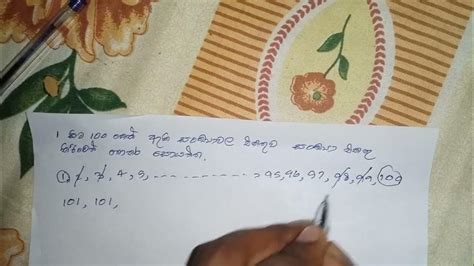 1 සිට 100 තෙක් ඇති සංඛ්‍යාවල එකතුව සංඛ්‍යා එකතු
කිරීමෙන් තොරව සොයන්න.
1, 2, 3, 4, 5, - - - - - - - - - - - - , 95, 96, 97, 98, 99, 100
101, 101,